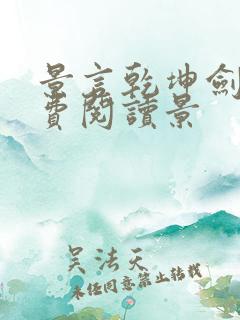 景言乾坤劍
費閱讀景
吴法天
未经同意禁止转载